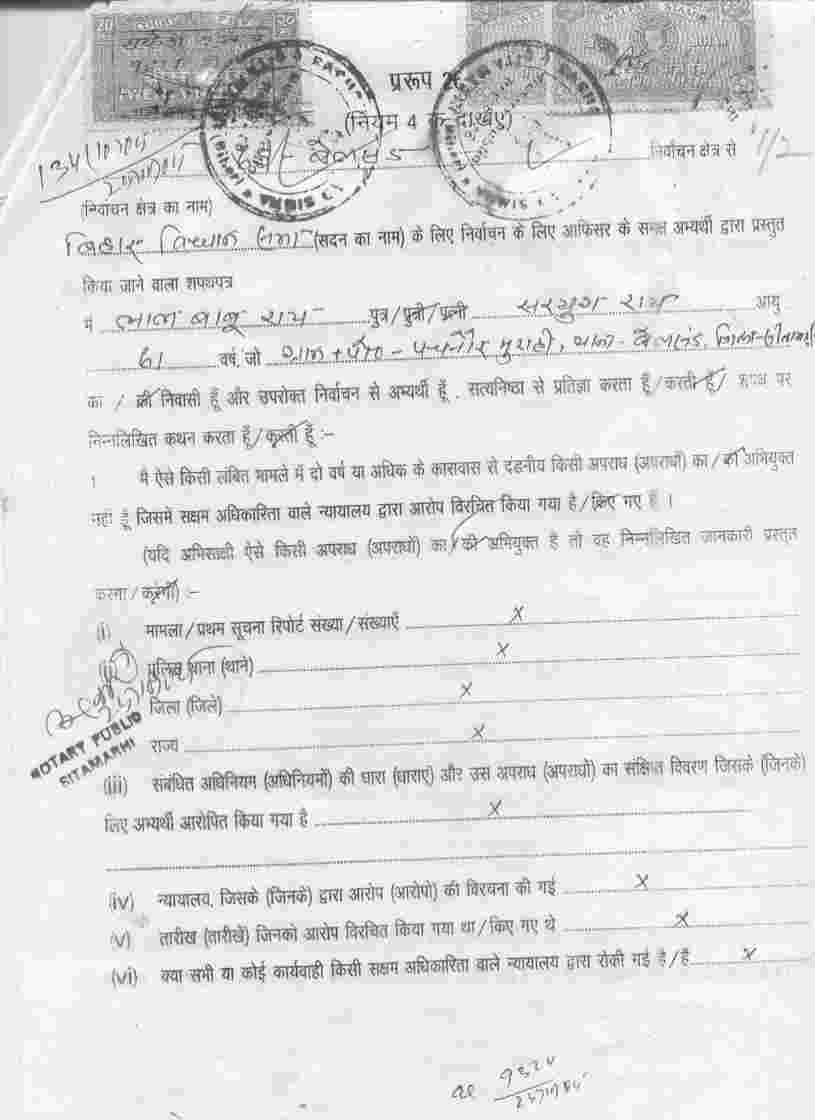 20 20
प्ररूप 26
(नियम 4 क देखिए)
बेलसंड निर्वाचन क्षेत्र से
(निर्वाचन क्षेत्र का नाम)
बिहार विधान सभा (सदन का नाम) के लिए निर्वाचन के लिए आफिसर के समक्ष अभ्यर्थी द्वारा प्रस्तुत
किया जाने वाला शपथपत्र
मैं लाल बाबू राय पुत्र/पुत्री/पत्नी सरयुग राय आयु
61 वर्ष, जो ग्राम + पो० - पचनौर मुराही, थाना - बेलसंड, जिला-सीतामढ़ी
का / की निवासी हूँ और उपरोक्त निर्वाचन से अभ्यर्थी हूँ . सत्यनिष्ठा से प्रतिज्ञा करता हूँ/करती हूँ/ शपथ पर
निन्नलिखित कथन करता हूँ/करती हूँ :-
1 मै ऐसे किसी लंबित मामले में दो वर्ष या अधिक के कारावास से दंडनीय किसी अपराध (अपराधों) का/की अभियुक्त
नहीं हूँ जिसमें सक्षम अधिकारिता वाले न्यायालय द्वारा आरोप विरचित किया गया है/किए गए है ।
(यदि अभिसाक्षी ऐसे किसी अपराध (अपराधों) का/की अभियुक्त है तो वह निन्नलिखित जानकारी प्रस्तुत
करेगा/करेगी) :-
(i) मामला/प्रथम सूचना रिपोर्ट संख्या/संख्याएँ x
(ii) पुलिस थाना (थाने) x
जिला (जिले) x
NOTARY PUBLIC
SITAMARHI
राज्य x
(iii) संबंधित अधिनियम (अधिनियमों) की धारा (धाराए) और उस अपराध (अपराधो) का संक्षिप्त विवरण जिसके (जिनके)
लिए अभ्यर्थी आरोपित किया गया है x
(iv) न्यायालय, जिसके (जिनके) द्वारा आरोप (आरोपो) की विरचना की गई x
(v) तारीख (तारीखें) जिनको आरोप विरचित किया गया था/किए गए थे x
(vi) क्या सभी या कोई कार्यवाही किसी सक्षम अधिकारिता वाले न्यायालय द्वारा रोकी गई है/है x